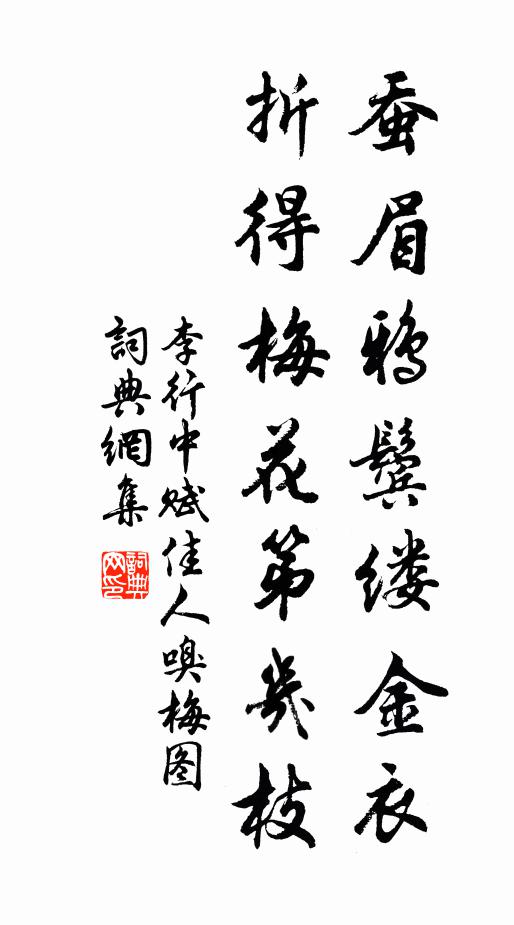 蚕眉鸦鬓缕金衣
折得梅花第几枝
李行中赋佳人嗅梅图
詞典網集
詞典网印